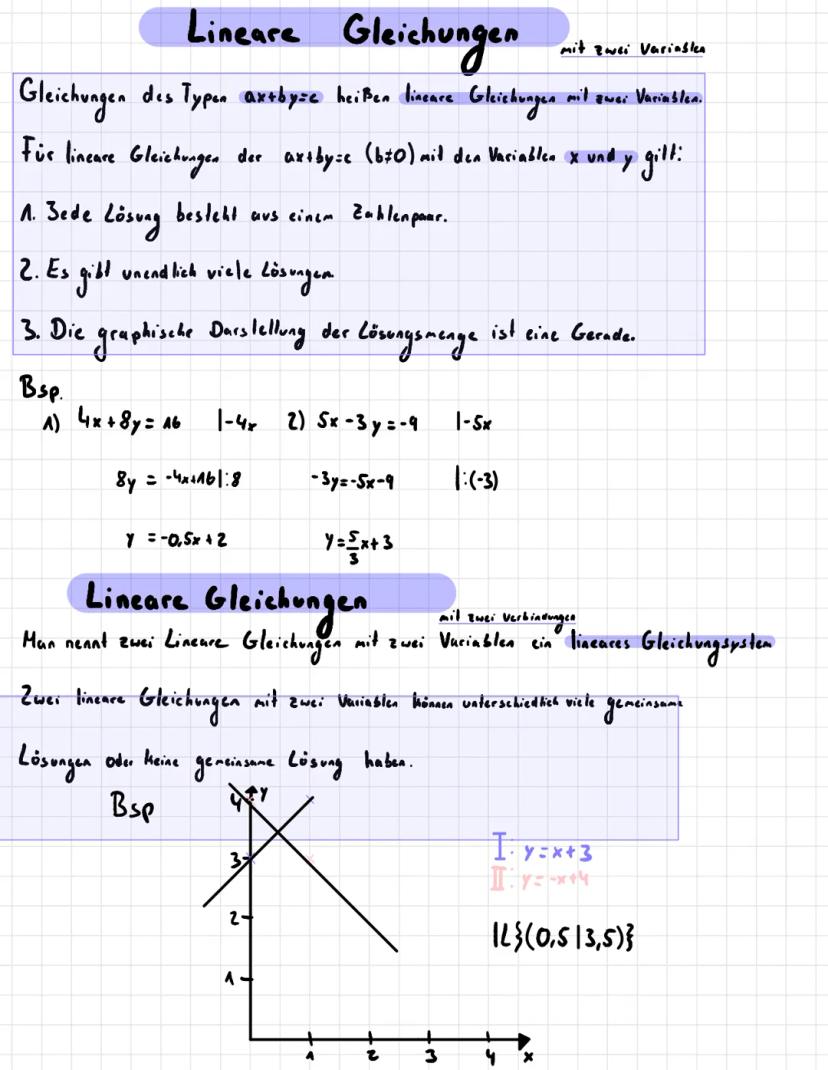 Lineare Gleichungen
mit zwei Variablen
Gleichungen des Typen ax+by=c heißen lineare Gleichungen mit zwei Variablen.
Für lineare Gleichungen der ax+by=c (b≠0) mit den Variablen x und y gilt:
1. Jede Lösung besteht aus einem Zahlenpaar.
2. Es gibt unendlich viele Lösungen.
3. Die graphische Darstellung der Lösungsmenge ist eine Gerade.
Bsp.
1) 4x+8y=16 |-4x 2) 5x-3y=-9 |-5x
8y = -4x+16 |:8 -3y=-5x-9 |:(-3)
y = -0,5x+2 y=5/3x+3
Lineare Gleichungen
mit zwei Verbindungen
Man nennt zwei Lineare Gleichungen mit zwei Variablen ein lineares Gleichungsystem
Zwei lineare Gleichungen mit zwei Variablen können unterschiedlich viele gemeinsame
Lösungen oder keine gemeinsame Lösung haben.
Bsp
4 y
3
I: y=x+3
II: y=-x+4
2
|L}(0,5|3,5)}
1
1 2 3 4 x